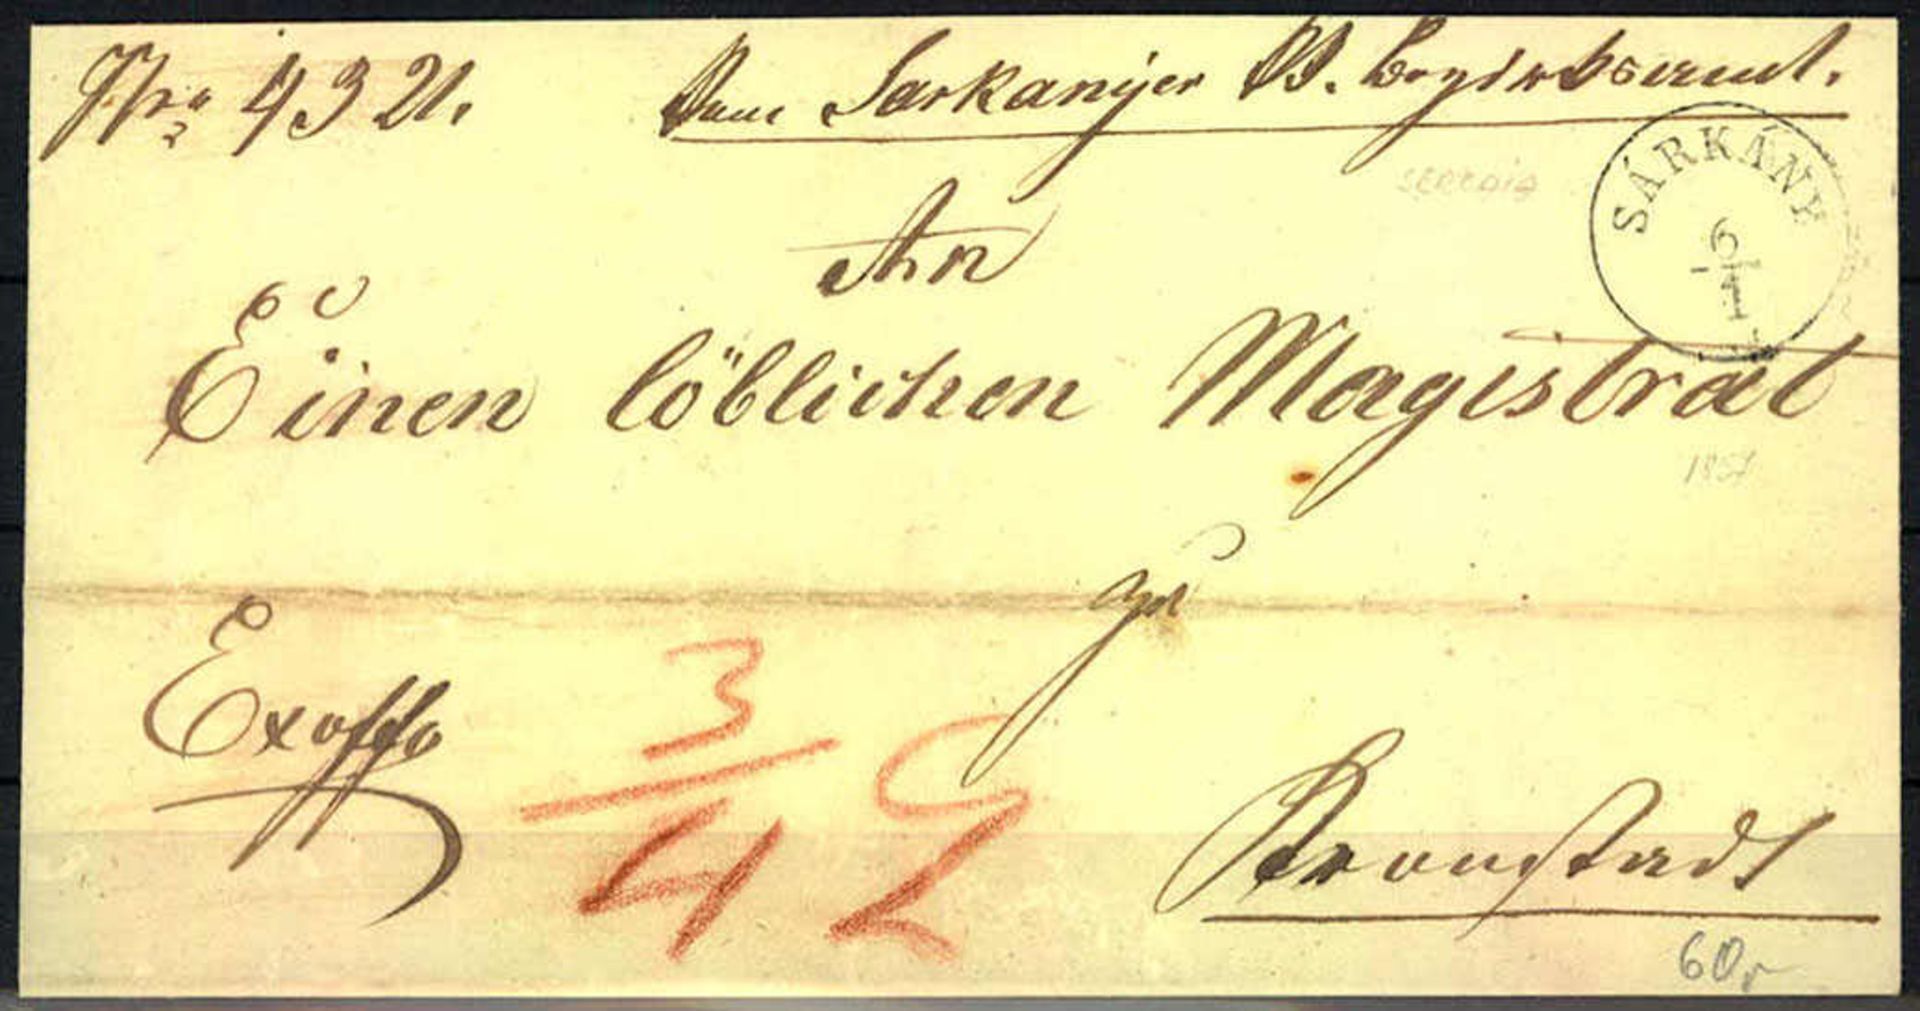 Nro 4321. Vom Sarkanyer Bezirksamt.
SÁRKÁNY
6/1
An
Einen löblichen Magistrat
1857
zu
Exoffo
3/4
Kronstadt
60